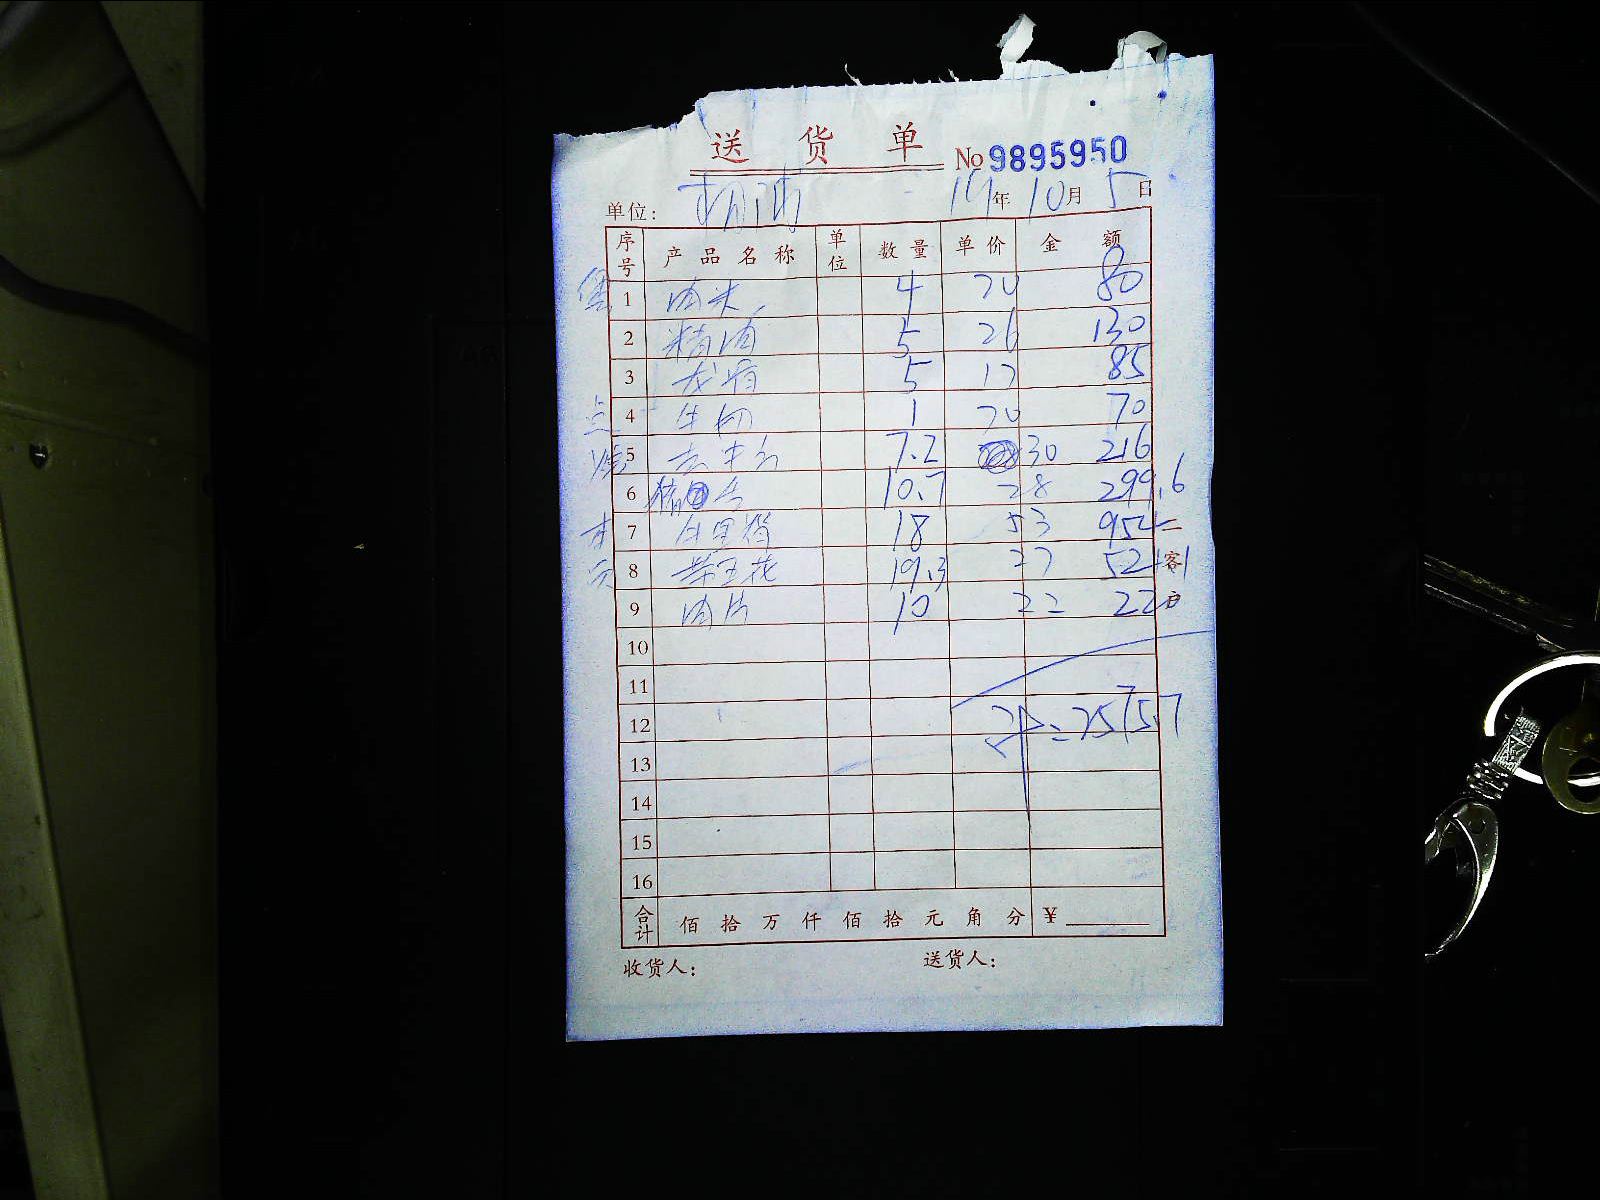 送货单 No 9895950
单位: 19年10月5日
序号 产品名称 单位 数量 单价 金额
1 肉米 4 20 80
2 精肉 5 26 130
3 龙骨 5 17 85
4 牛肉 1 70 70
5 7.2 30 216
6 10.7 28 299.6
7 18 53 954
8 19.3 27 521.1
9 肉片 10 22 220
10
11
12 =2575.7
13
14
15
16
合计 佰拾万仟佰拾元角分 ¥
收货人: 送货人:
二
客户